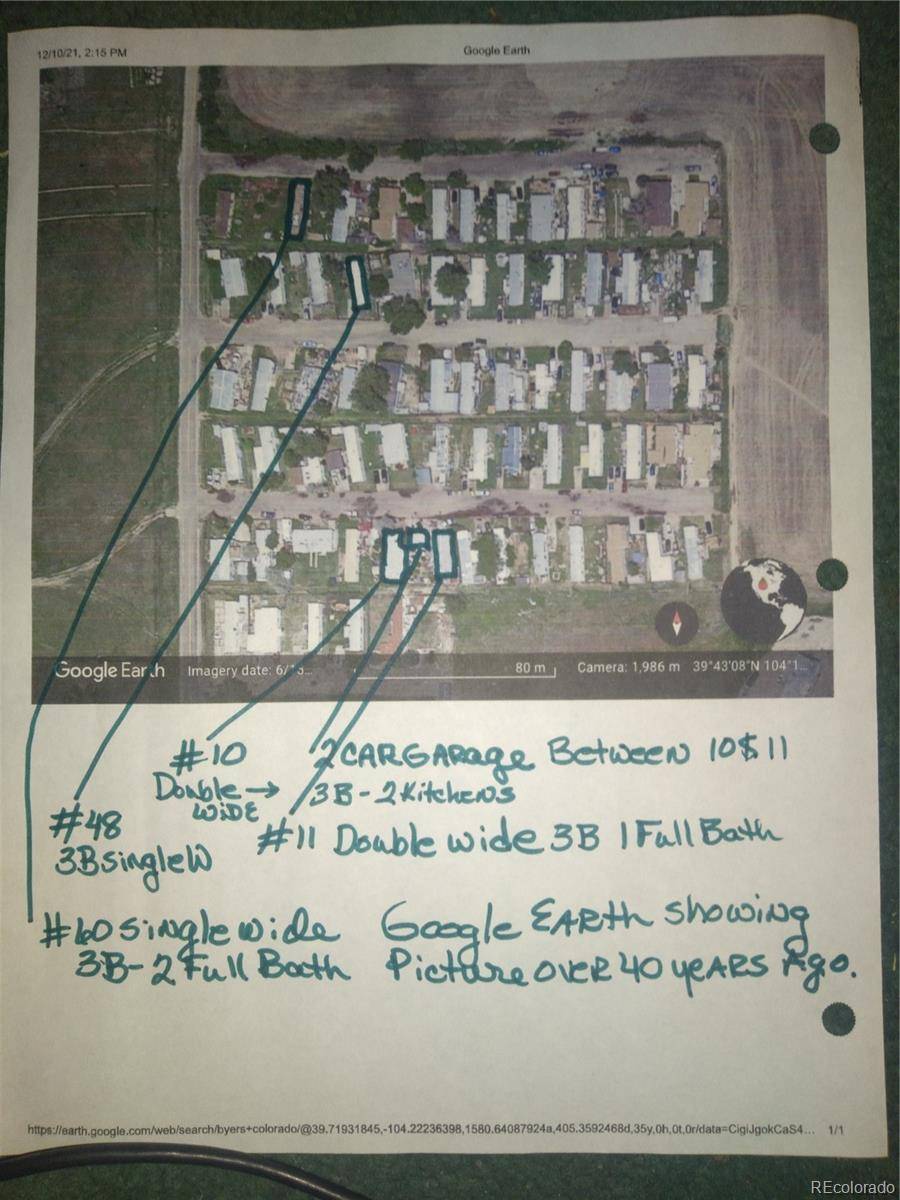 12/10/21, 2:15 PM Google Earth
Google Earth Imagery date: 6/15... 80 m Camera: 1,986 m 39°43'08"N 104°1...
#10 2 CAR GARage Between 10$11
Double → 3B-2 Kitchens
WIDE
#48 #11 Double wide 3B 1 Full Bath
3B single W
#60 single wide Google EARTH showing
3B-2 Full Bath Picture OVER 40 yeARS Ago.
https://earth.google.com/web/search/byers+colorado/@39.71931845,-104.22236398,1580.64087924a,405.3592468d,35y,0h,0t,0r/data=CigiJgokCaS4... 1/1
REcolorado